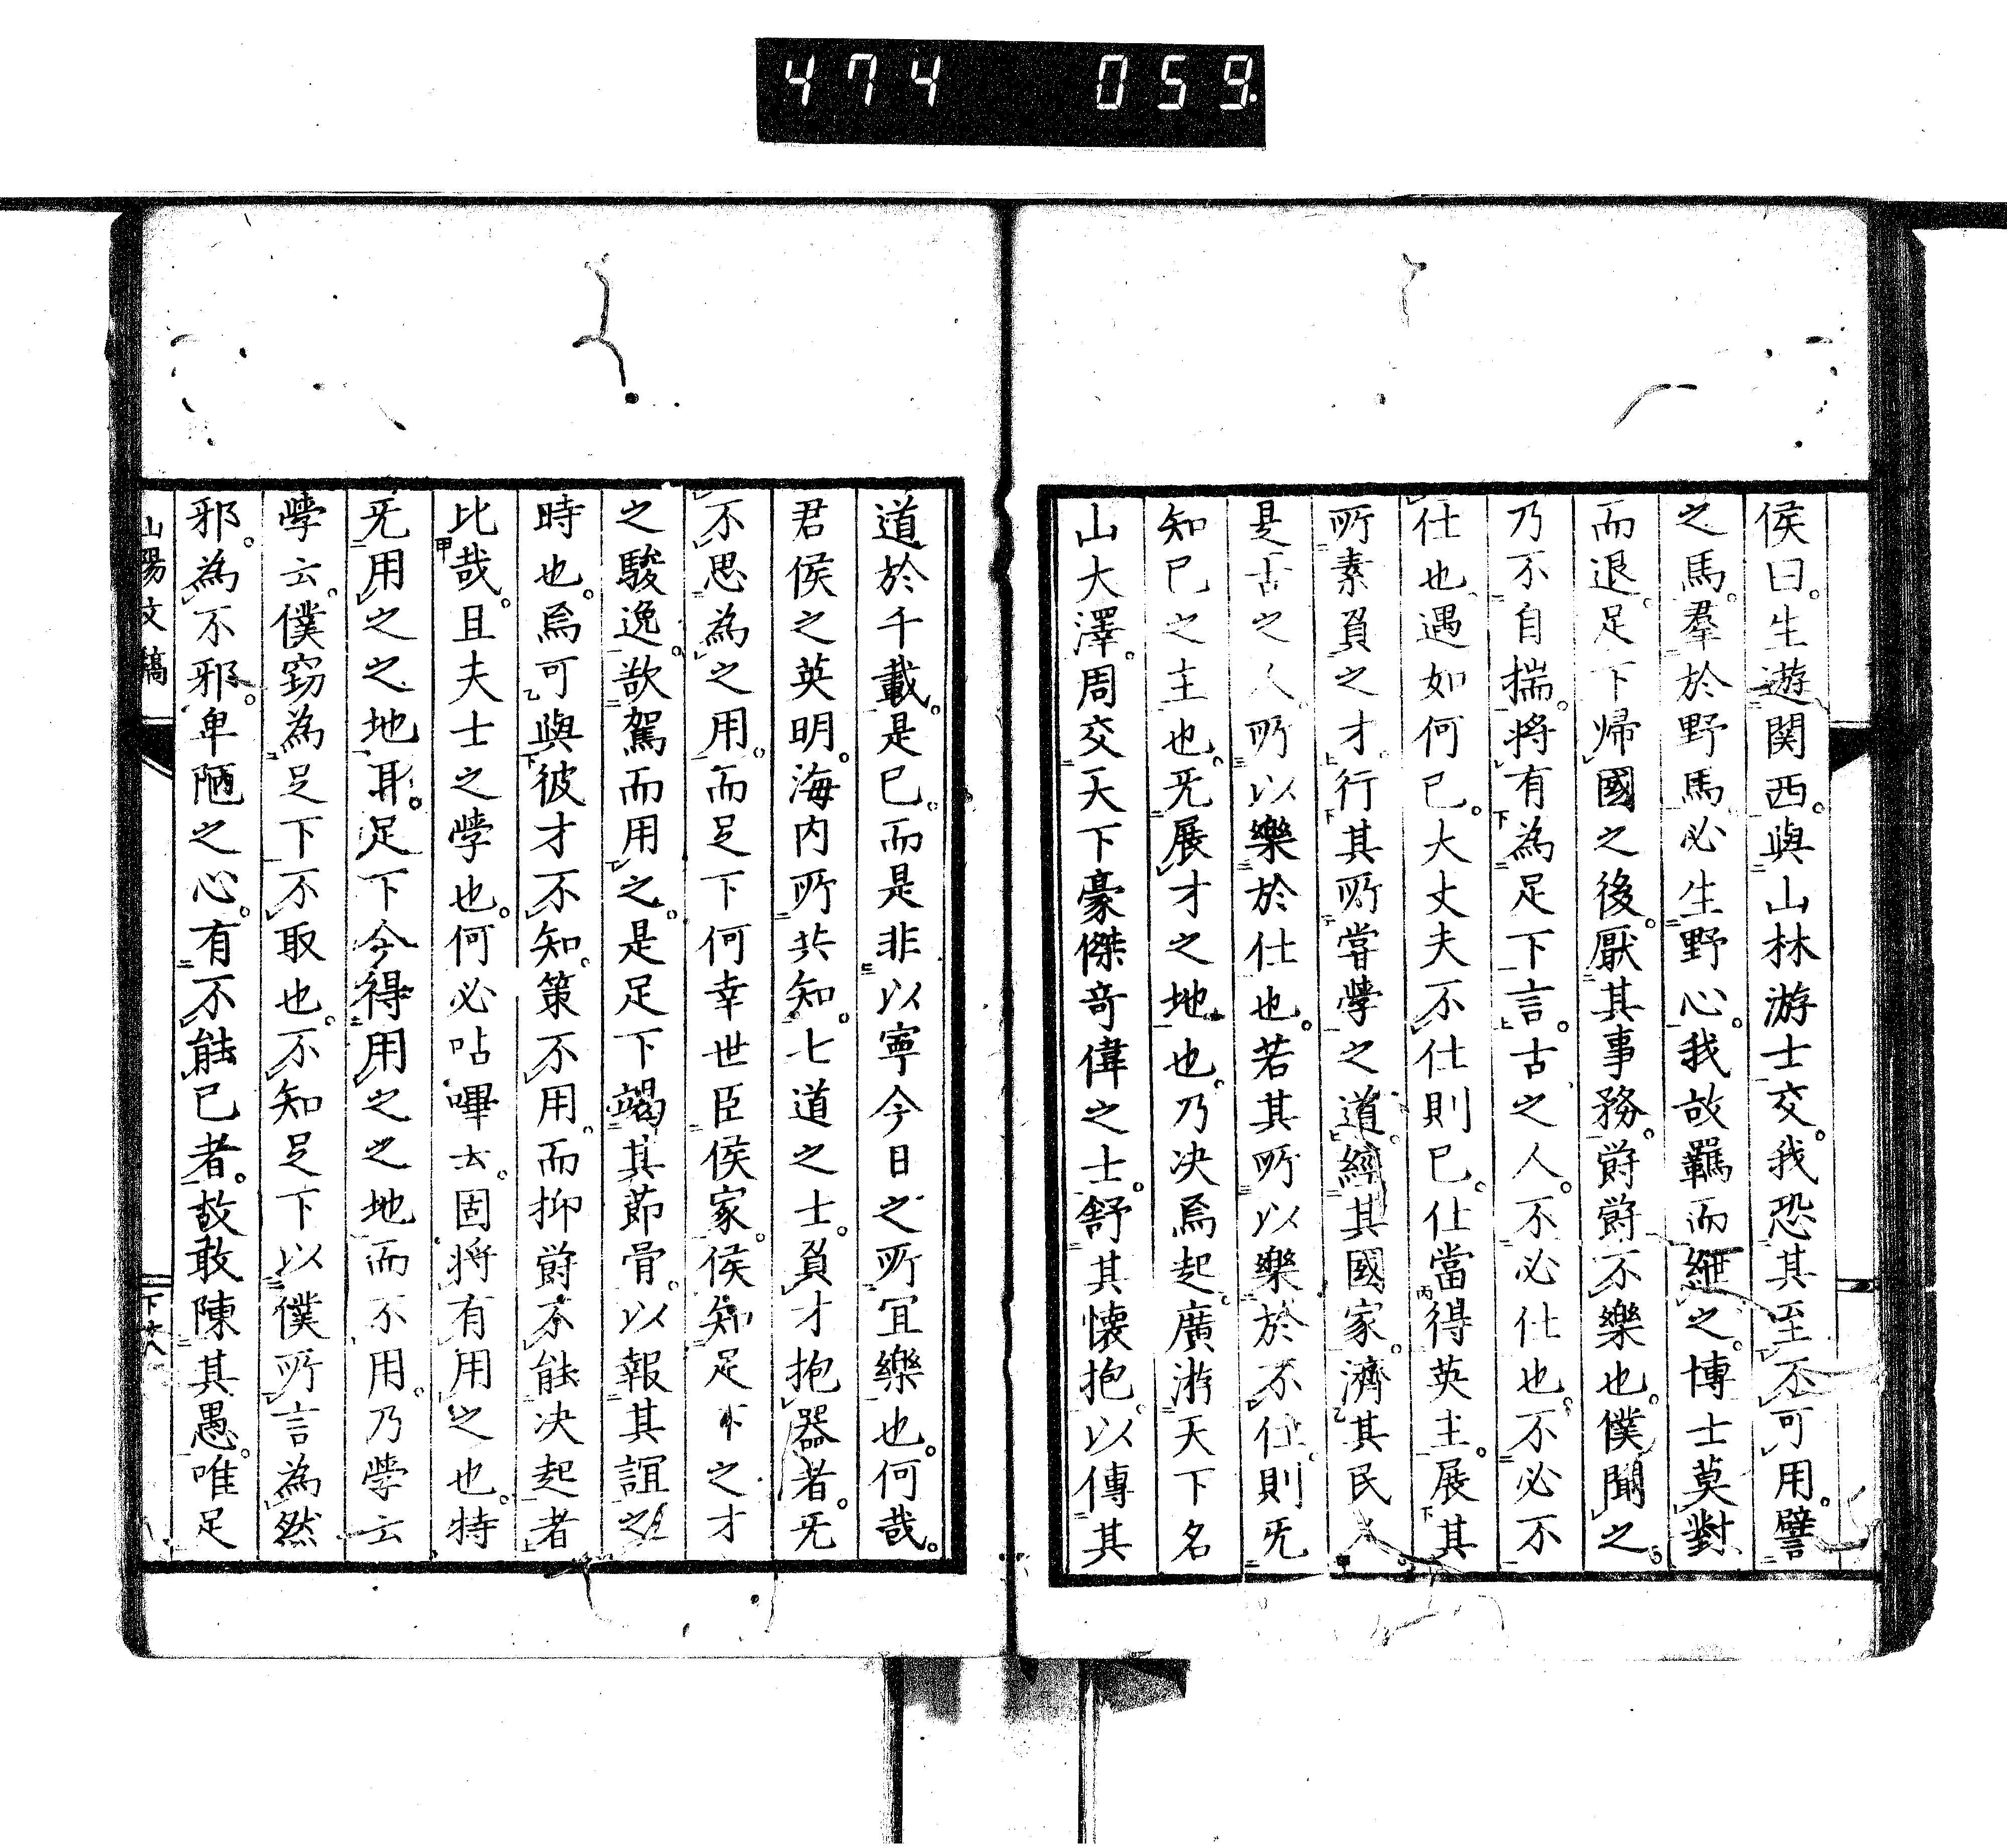 474 059
侯曰。生遊関西。與山林游士交。我恐其至不可用。譬
之馬。羣於野馬。必生野心。我故羈而維之。博士莫對
而退。足下帰國之後。厭其事務。欝欝不樂也。僕聞之。
乃不自揣。將有為足下言。古之人。不必仕也。不必不
仕也。遇如何已。大丈夫不仕則已。仕當得英主。展其
所素負之才。行其所嘗學之道。經其國家。濟其民人。
是古之人。所以樂於仕也。若其所以樂於不仕。則旡
知己之主也。旡展才之地也。乃决焉起。廣游天下名
山大澤。周交天下豪傑竒偉之士。舒其懐抱。以傳其
道於千載。是已。而是非以寧今日之所宜樂也。何哉。
君侯之英明。海内所共知。七道之士。負才抱器者。旡
不思為之用。而足下何幸世臣侯家。侯知足下之才
之駿逸。欲駕而用之。是足下竭其莭骨。以報其誼之
時也。焉可與彼才不知。策不用。而抑欝不能决起者
比哉。且夫士之學也。何必呫嗶云。固將有用之也。特
旡用之之地耳。足下今得用之之地而不用。乃學云
學云。僕窃為足下不取也。不知足下以僕所言為然
邪。為不邪。卑陋之心。有不能已者。故敢陳其愚。唯足
山陽文稿
下 廿八